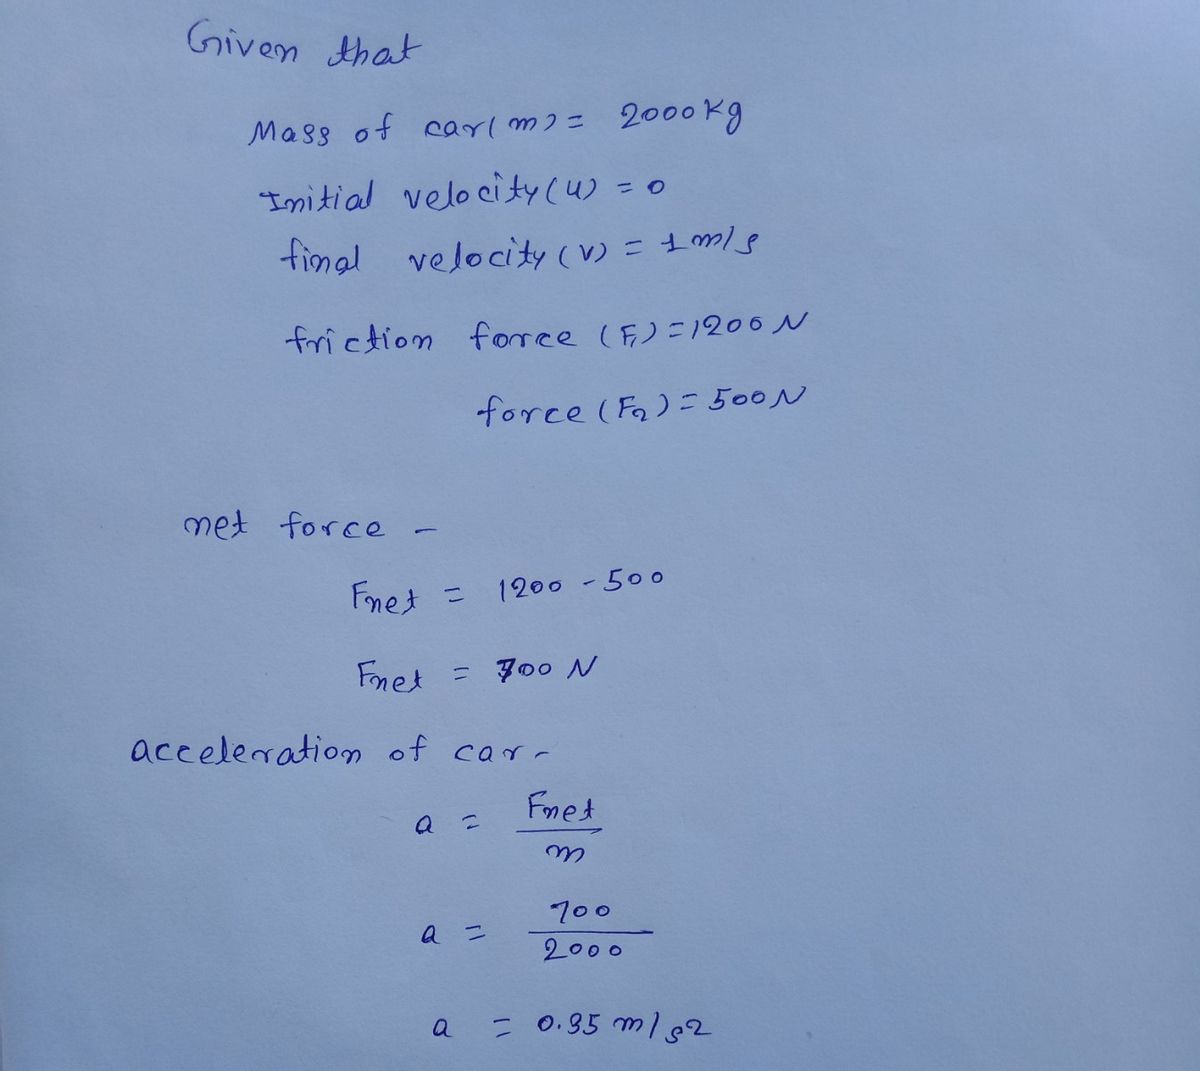 Given that
Mass of car(m) = 2000kg
Initial velocity(u) = 0
final velocity (v) = 1 m/s
friction force (F1) = 1200 N
force (F2) = 500N
net force -
Fnet = 1200 - 500
Fnet = 700 N
acceleration of car -
a = Fnet
m
a = 700
2000
a = 0.35 m/s2